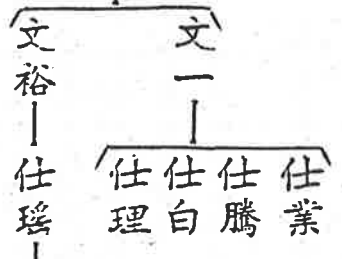 文一
仕業
仕騰
仕白
仕理
文裕
仕瑶